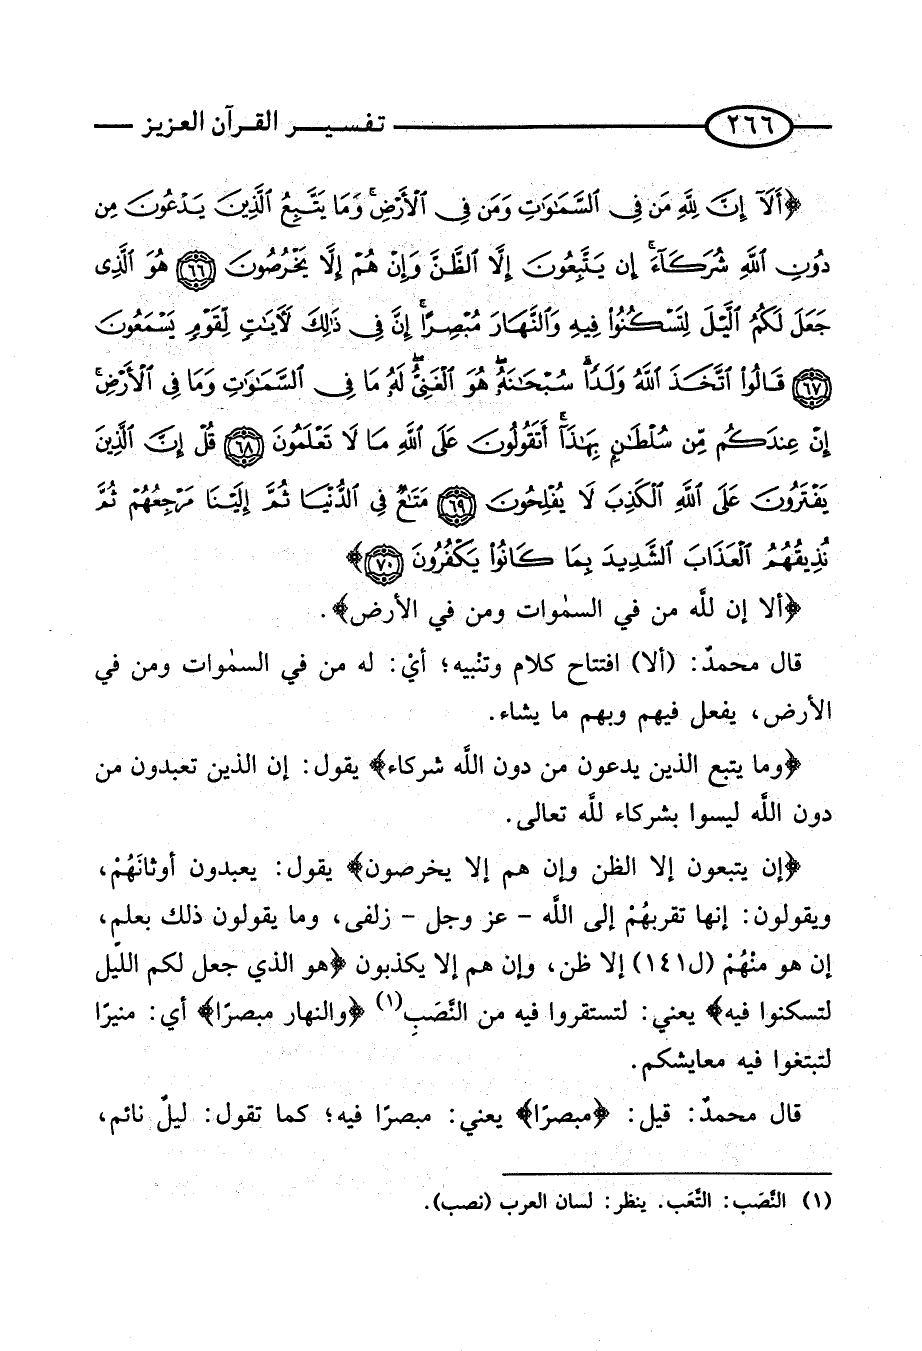 ٢٦٦ تفسير القرآن العزيز
﴿أَلَآ إِنَّ لِلَّهِ مَن فِى ٱلسَّمَٰوَٰتِ وَمَن فِى ٱلْأَرْضِۗ وَمَا يَتَّبِعُ ٱلَّذِينَ يَدْعُونَ مِن
دُونِ ٱللَّهِ شُرَكَآءَۚ إِن يَتَّبِعُونَ إِلَّا ٱلظَّنَّ وَإِنْ هُمْ إِلَّا يَخْرُصُونَ ٦٦ هُوَ ٱلَّذِى
جَعَلَ لَكُمُ ٱلَّيْلَ لِتَسْكُنُوا۟ فِيهِ وَٱلنَّهَارَ مُبْصِرًاۚ إِنَّ فِى ذَٰلِكَ لَآيَٰتٍ لِّقَوْمٍ يَسْمَعُونَ
٦٧ قَالُوا۟ ٱتَّخَذَ ٱللَّهُ وَلَدًاۗ سُبْحَٰنَهُۥۖ هُوَ ٱلْغَنِىُّۖ لَهُۥ مَا فِى ٱلسَّمَٰوَٰتِ وَمَا فِى ٱلْأَرْضِۚ
إِنْ عِندَكُم مِّن سُلْطَٰنٍۭ بِهَٰذَآۚ أَتَقُولُونَ عَلَى ٱللَّهِ مَا لَا تَعْلَمُونَ ٦٨ قُلْ إِنَّ ٱلَّذِينَ
يَفْتَرُونَ عَلَى ٱللَّهِ ٱلْكَذِبَ لَا يُفْلِحُونَ ٦٩ مَتَٰعٌ فِى ٱلدُّنْيَا ثُمَّ إِلَيْنَا مَرْجِعُهُمْ ثُمَّ
نُذِيقُهُمُ ٱلْعَذَابَ ٱلشَّدِيدَ بِمَا كَانُوا۟ يَكْفُرُونَ ٧٠﴾
﴿ألا إن للَّه من في السمٰوات ومن في الأرض﴾.
قال محمدٌ: (ألا) افتتاح كلام وتنْبيه؛ أيْ: له من في السمٰوات ومن في
الأرض، يفعل فيهم وبهم ما يشاء.
﴿وما يتبع الذين يدعون من دون اللَّه شركاء﴾ يقول: إن الذين تعبدون من
دون اللَّه ليسوا بشركاء للَّه تعالى.
﴿إن يتبعون إلا الظن وإن هم إلا يخرصون﴾ يقول: يعبدون أوثانَهُمْ،
ويقولون: إنها تقربهُمْ إلى اللَّه - عز وجل - زلفى، وما يقولون ذلك بعلم،
إن هو منْهُمْ (ل١٤١) إلا ظن، وإن هم إلا يكذبون ﴿هو الذي جعل لكم اللَّيل
لتسكنوا فيه﴾ يعني: لتستقروا فيه من النَّصَبِ(١) ﴿والنهار مبصرًا﴾ أي: منيرًا
لتبتغوا فيه معايشكم.
قال محمدٌ: قيل: ﴿مبصرًا﴾ يعني: مبصرًا فيه؛ كما تقول: ليلٌ نائم،
(١) النَّصَب: التَّعَب. ينظر: لسان العرب (نصب).